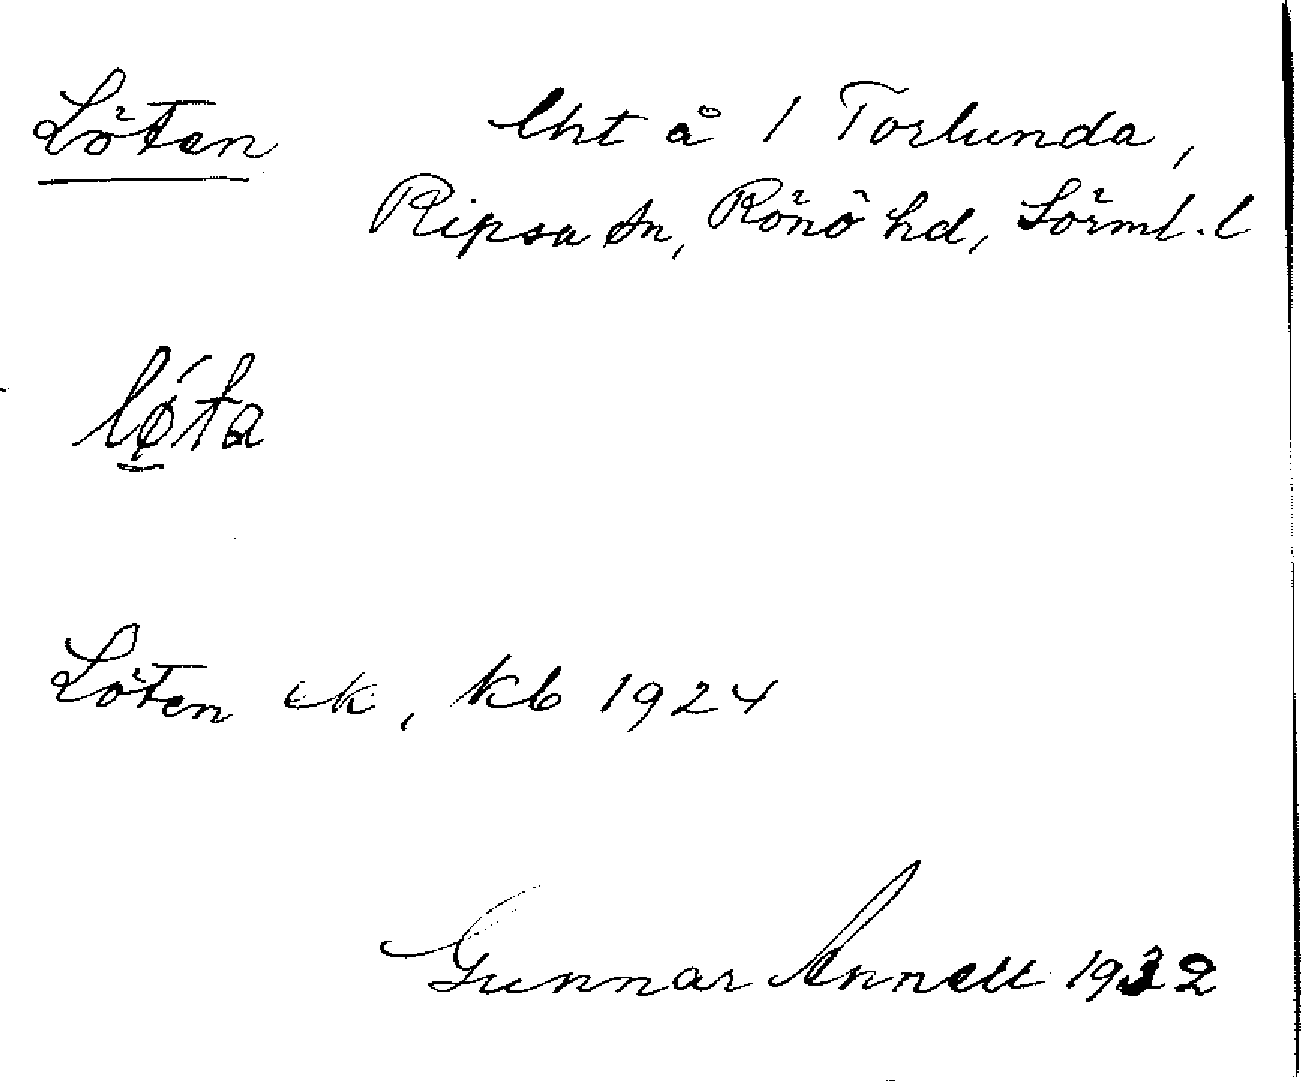 Löten lht å 1 Torlunda,
Ripsa sn, Rönö hd, Sörml. l
lø̀ta
Löten ek, kb 1924
Gunnar Annell 1932